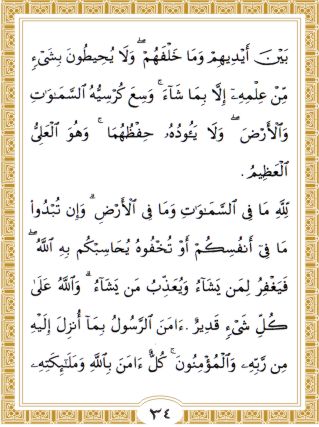 بَيْنَ أَيْدِيهِمْ وَمَا خَلْفَهُمْ ۖ وَلَا يُحِيطُونَ بِشَىْءٍ
مِّنْ عِلْمِهِۦٓ إِلَّا بِمَا شَآءَ ۚ وَسِعَ كُرْسِيُّهُ ٱلسَّمَـٰوَٰتِ
وَٱلْأَرْضَ ۖ وَلَا يَـُٔودُهُۥ حِفْظُهُمَا ۚ وَهُوَ ٱلْعَلِىُّ
ٱلْعَظِيمُ .
لِلَّهِ مَا فِى ٱلسَّمَـٰوَٰتِ وَمَا فِى ٱلْأَرْضِ ۗ وَإِن تُبْدُوا۟
مَا فِىٓ أَنفُسِكُمْ أَوْ تُخْفُوهُ يُحَاسِبْكُم بِهِ ٱللَّهُ ۖ
فَيَغْفِرُ لِمَن يَشَآءُ وَيُعَذِّبُ مَن يَشَآءُ ۗ وَٱللَّهُ عَلَىٰ
كُلِّ شَىْءٍ قَدِيرٌ . ءَامَنَ ٱلرَّسُولُ بِمَآ أُنزِلَ إِلَيْهِ
مِن رَّبِّهِۦ وَٱلْمُؤْمِنُونَ ۚ كُلٌّ ءَامَنَ بِٱللَّهِ وَمَلَـٰٓئِكَتِهِۦ
٣٤